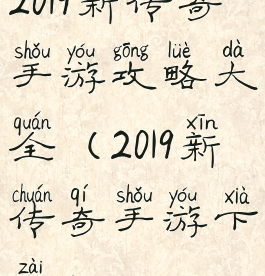 2019新传奇
shǒu yóu gōng lüè dà
手游攻略大
quán xīn
全(2019新
chuán qí shǒu yóu xià
传奇手游下
zài